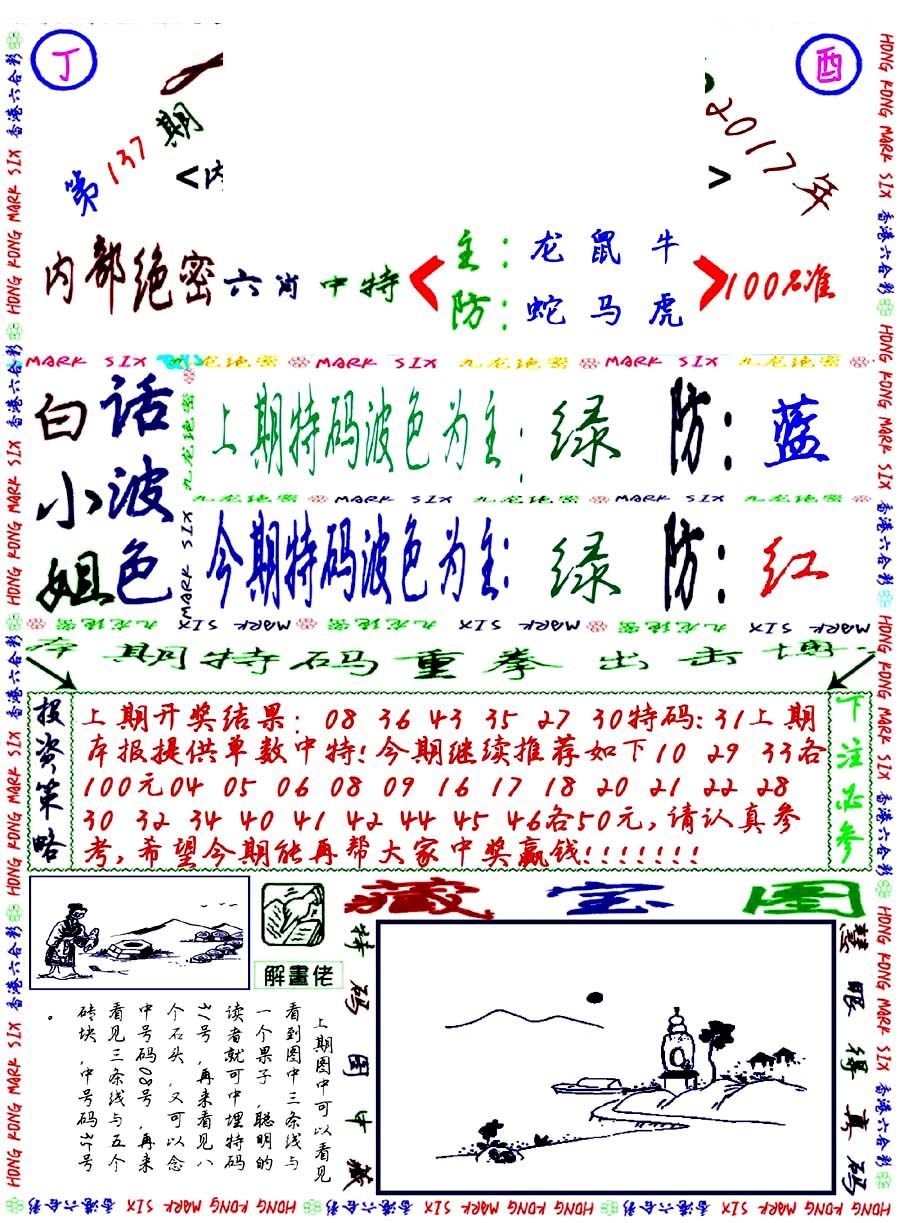 丁
酉
第137期
2017年
<内
>
内部绝密六肖中特
主：龙鼠牛
防：蛇马虎
100%准
MARK SIX 九龙绝密 MARK SIX 九龙绝密 MARK SIX 九龙绝密
白小姐
话波色
上期特码波色为主：绿 防：蓝
九龙绝密 MARK SIX 九龙绝密 MARK SIX 九龙绝密
今期特码波色为主：绿 防：红
MARK SIX 九龙绝密 MARK SIX 九龙绝密 MARK SIX 九龙绝密
本期特码重拳出击
投资策略
上期开奖结果：08 36 43 35 27 30特码：31上期
本报提供单数中特！今期继续推荐如下10 29 33各
100元04 05 06 08 09 16 17 18 20 21 22 28
30 32 34 40 41 42 44 45 46各50元，请认真参
考，希望今期能再帮大家中奖赢钱！！！！！！！
下注必参
解畫佬
藏宝图
特码图中藏
慧眼得真码
上期图中可以看见
看到图中三条线与
一个果子，聪明的
读者就可中埋特码
31号，再来看见八
个石头，又可以念
中号码08号，再来
看见三条线与五个
砖块，中号码35号
。
HONG KONG MARK SIX 香港六合彩